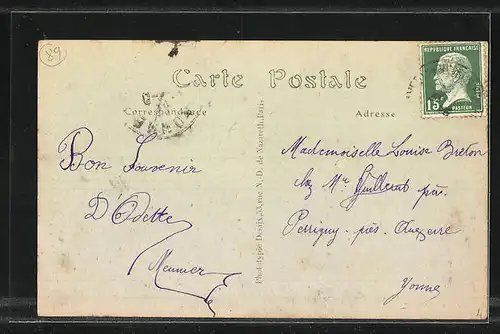 89
Carte Postale
Correspondance
Adresse
REPUBLIQUE FRANÇAISE
15c
PASTEUR
Bon Souvenir
D'Odette
Meunier
Phototypie Desaix, 53, rue N.-D. de Nazareth, Paris.
Mademoiselle Louise Breton
chez Mr Guillerat
Perrigny-près-Auxerre
Yonne